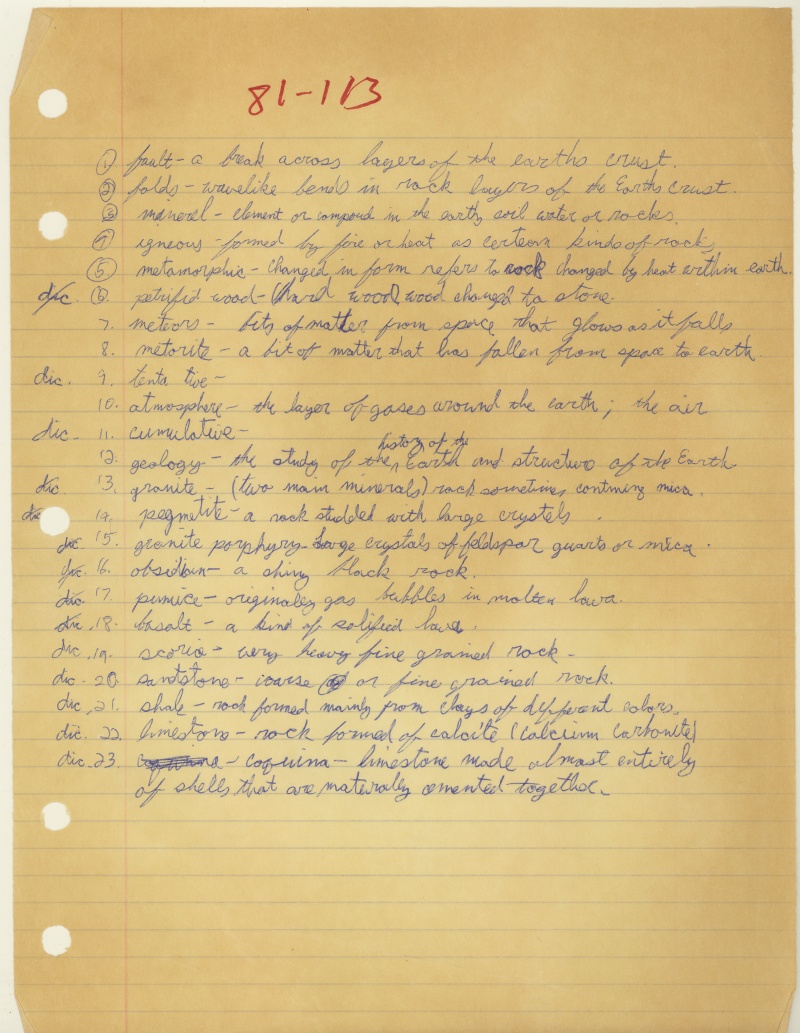 81-1B
① fault - a break across layers of the earths crust.
② folds - wavelike bends in rock layers of the Earths crust.
③ mineral - element or compound in the earths soil water or rocks.
④ igneous - formed by fire or heat as certean kinds of rock,
⑤ metamorphic - changed in form refers to rock changed by heat within earth.
dic. ⑥. petrifid wood - (hard wood) wood changed to stone.
7. meteors - bits of matter from space that glows as it falls
8. metorite - a bit of matter that has fallen from space to earth.
dic. 9. tenta tive -
10. atmosphere - the layer of gases around the earth; the air
dic. 11. cumulative -
history of the
12. geology - the study of the Earth and structure of the Earth
dic. 13. granite - (two main minerals) rock sometimes contining mica.
dic 14. pegmetite - a rock studded with large crystels.
dic. 15. granite porphyry - large crystals of feldspar quarts or mica.
dic. 16. obsidian - a shiny black rock.
dic. 17. pumice - originaley gas bubbles in molten lava.
dic. 18. basalt - a kind of solified lava.
dic. 19. scoria - very heavy fine grained rock -
dic. 20. sandstone - coarse or fine grained rock.
dic. 21. shale - rock formed mainly from clays of different colors.
dic. 22. limestone - rock formed of calcite (calcium carbonite)
dic. 23. - coquina - limestone made almost entirely
of shells that are naturaly cemented together.